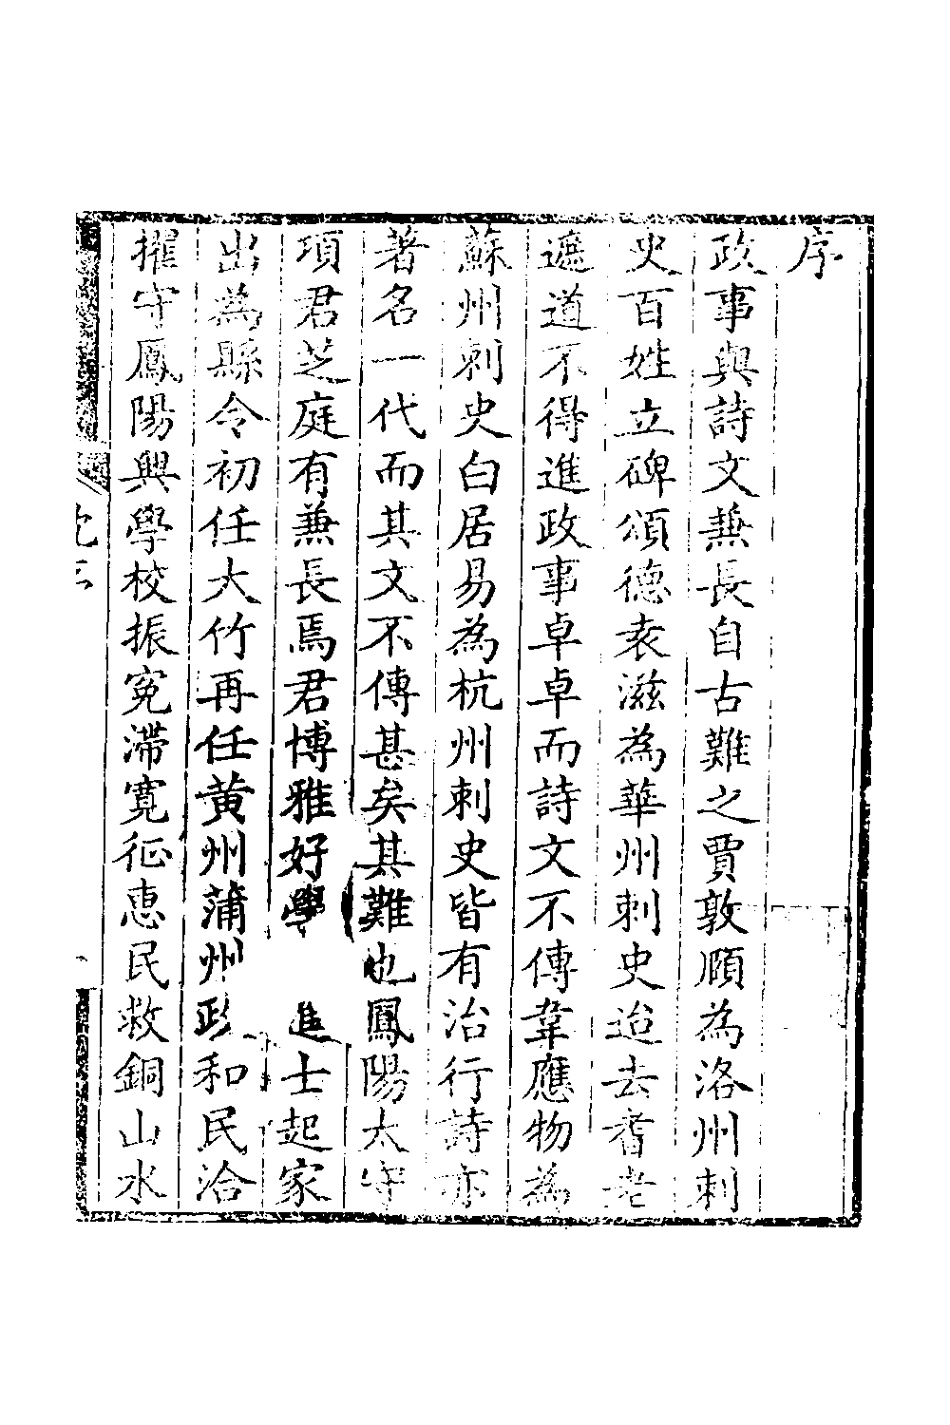 序
政事與詩文兼長自古難之賈敦頤為洛州刺
史百姓立碑頌德袁滋為華州刺史迨去耆老
遮道不得進政事卓卓而詩文不傳韋應物為
蘇州刺史白居易為杭州刺史皆有治行詩亦
著名一代而其文不傳甚矣其難也鳳陽太守
項君芝庭有兼長焉君博雅好學進士起家
出為縣令初任大竹再任黃州蒲州政和民洽
擢守鳳陽興學校振冤滯寬征惠民救銅山水